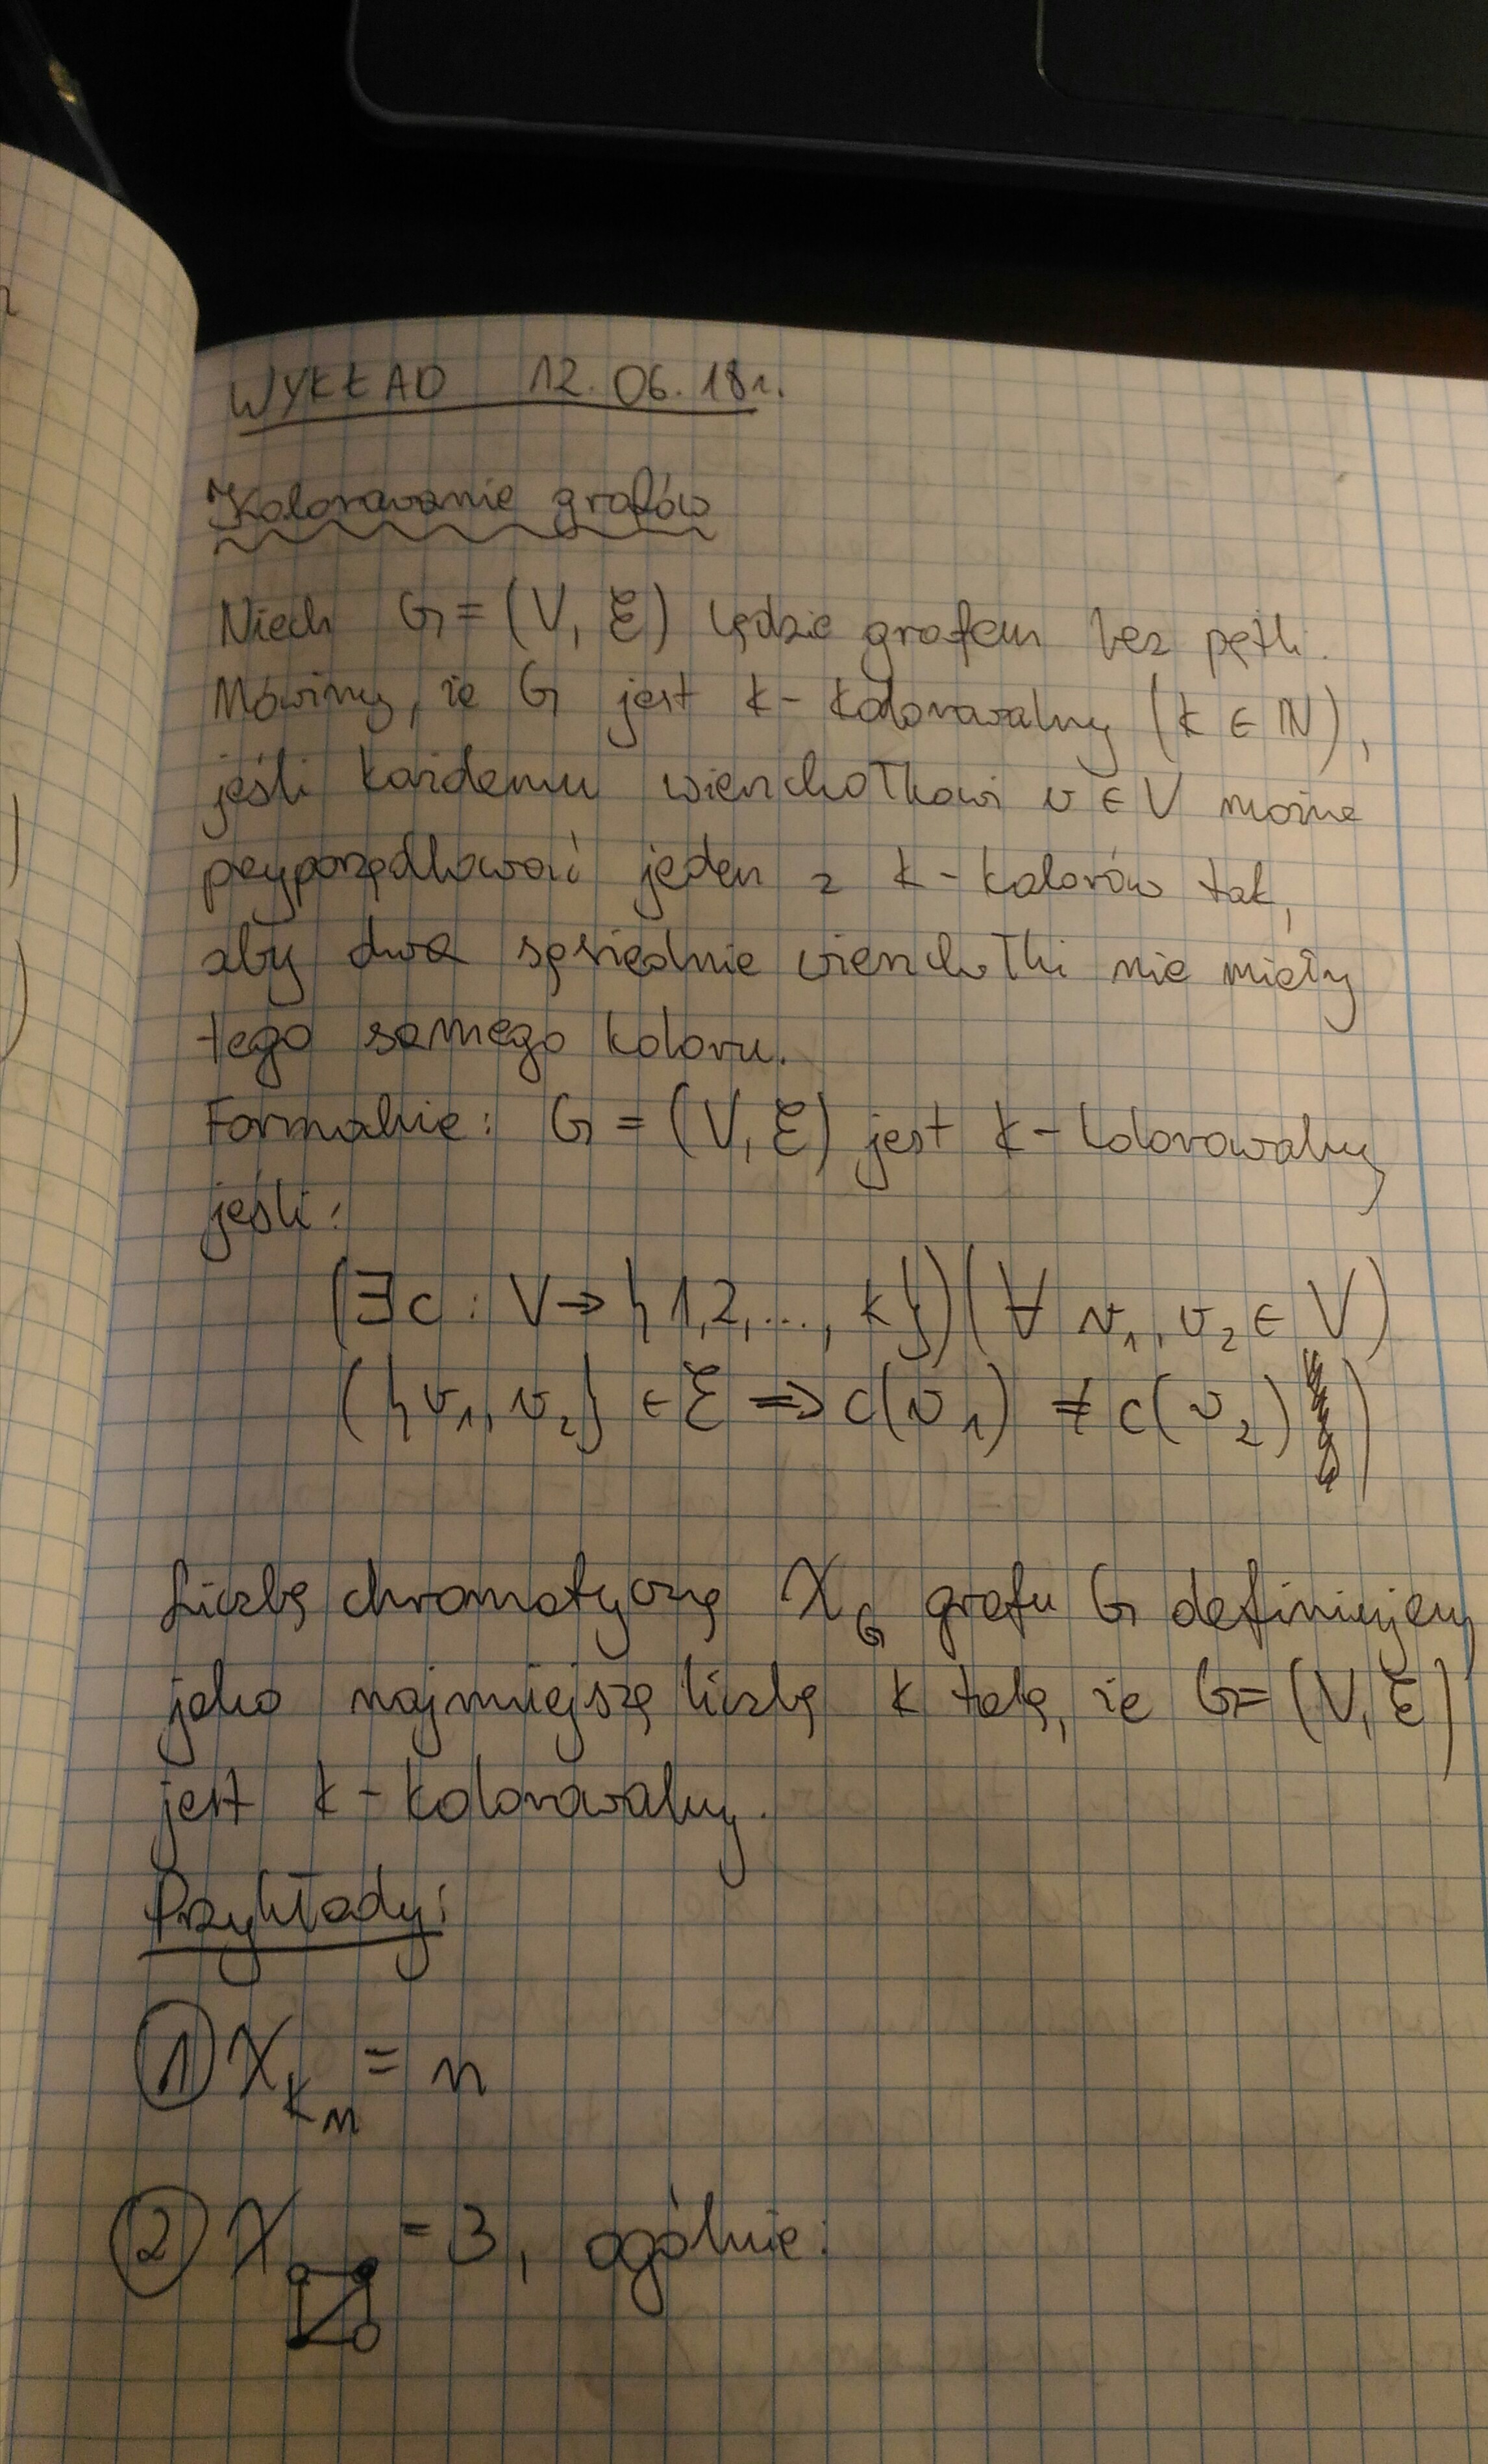 WYKŁAD 12.06.18r.
Kolorowanie grafów
Niech G = (V, E) będzie grafem bez pętli.
Mówimy, że G jest k-kolorowalny (k ∈ ℕ),
jeśli każdemu wierzchołkowi v ∈ V można
przyporządkować jeden z k-kolorów tak,
aby dwa sąsiednie wierzchołki nie miały
tego samego koloru.
Formalnie: G = (V, E) jest k-kolorowalny
jeśli:
(∃c : V → {1,2,..., k})(∀ v₁, v₂ ∈ V)
({v₁, v₂} ∈ E ⇒ c(v₁) ≠ c(v₂))
Liczbę chromatyczną χ_G grafu G definiujemy
jako najmniejszą liczbę k taką, że G = (V, E)
jest k-kolorowalny.
Przykłady:
① χ_Kₙ = n
② χ = 3, ogólnie: